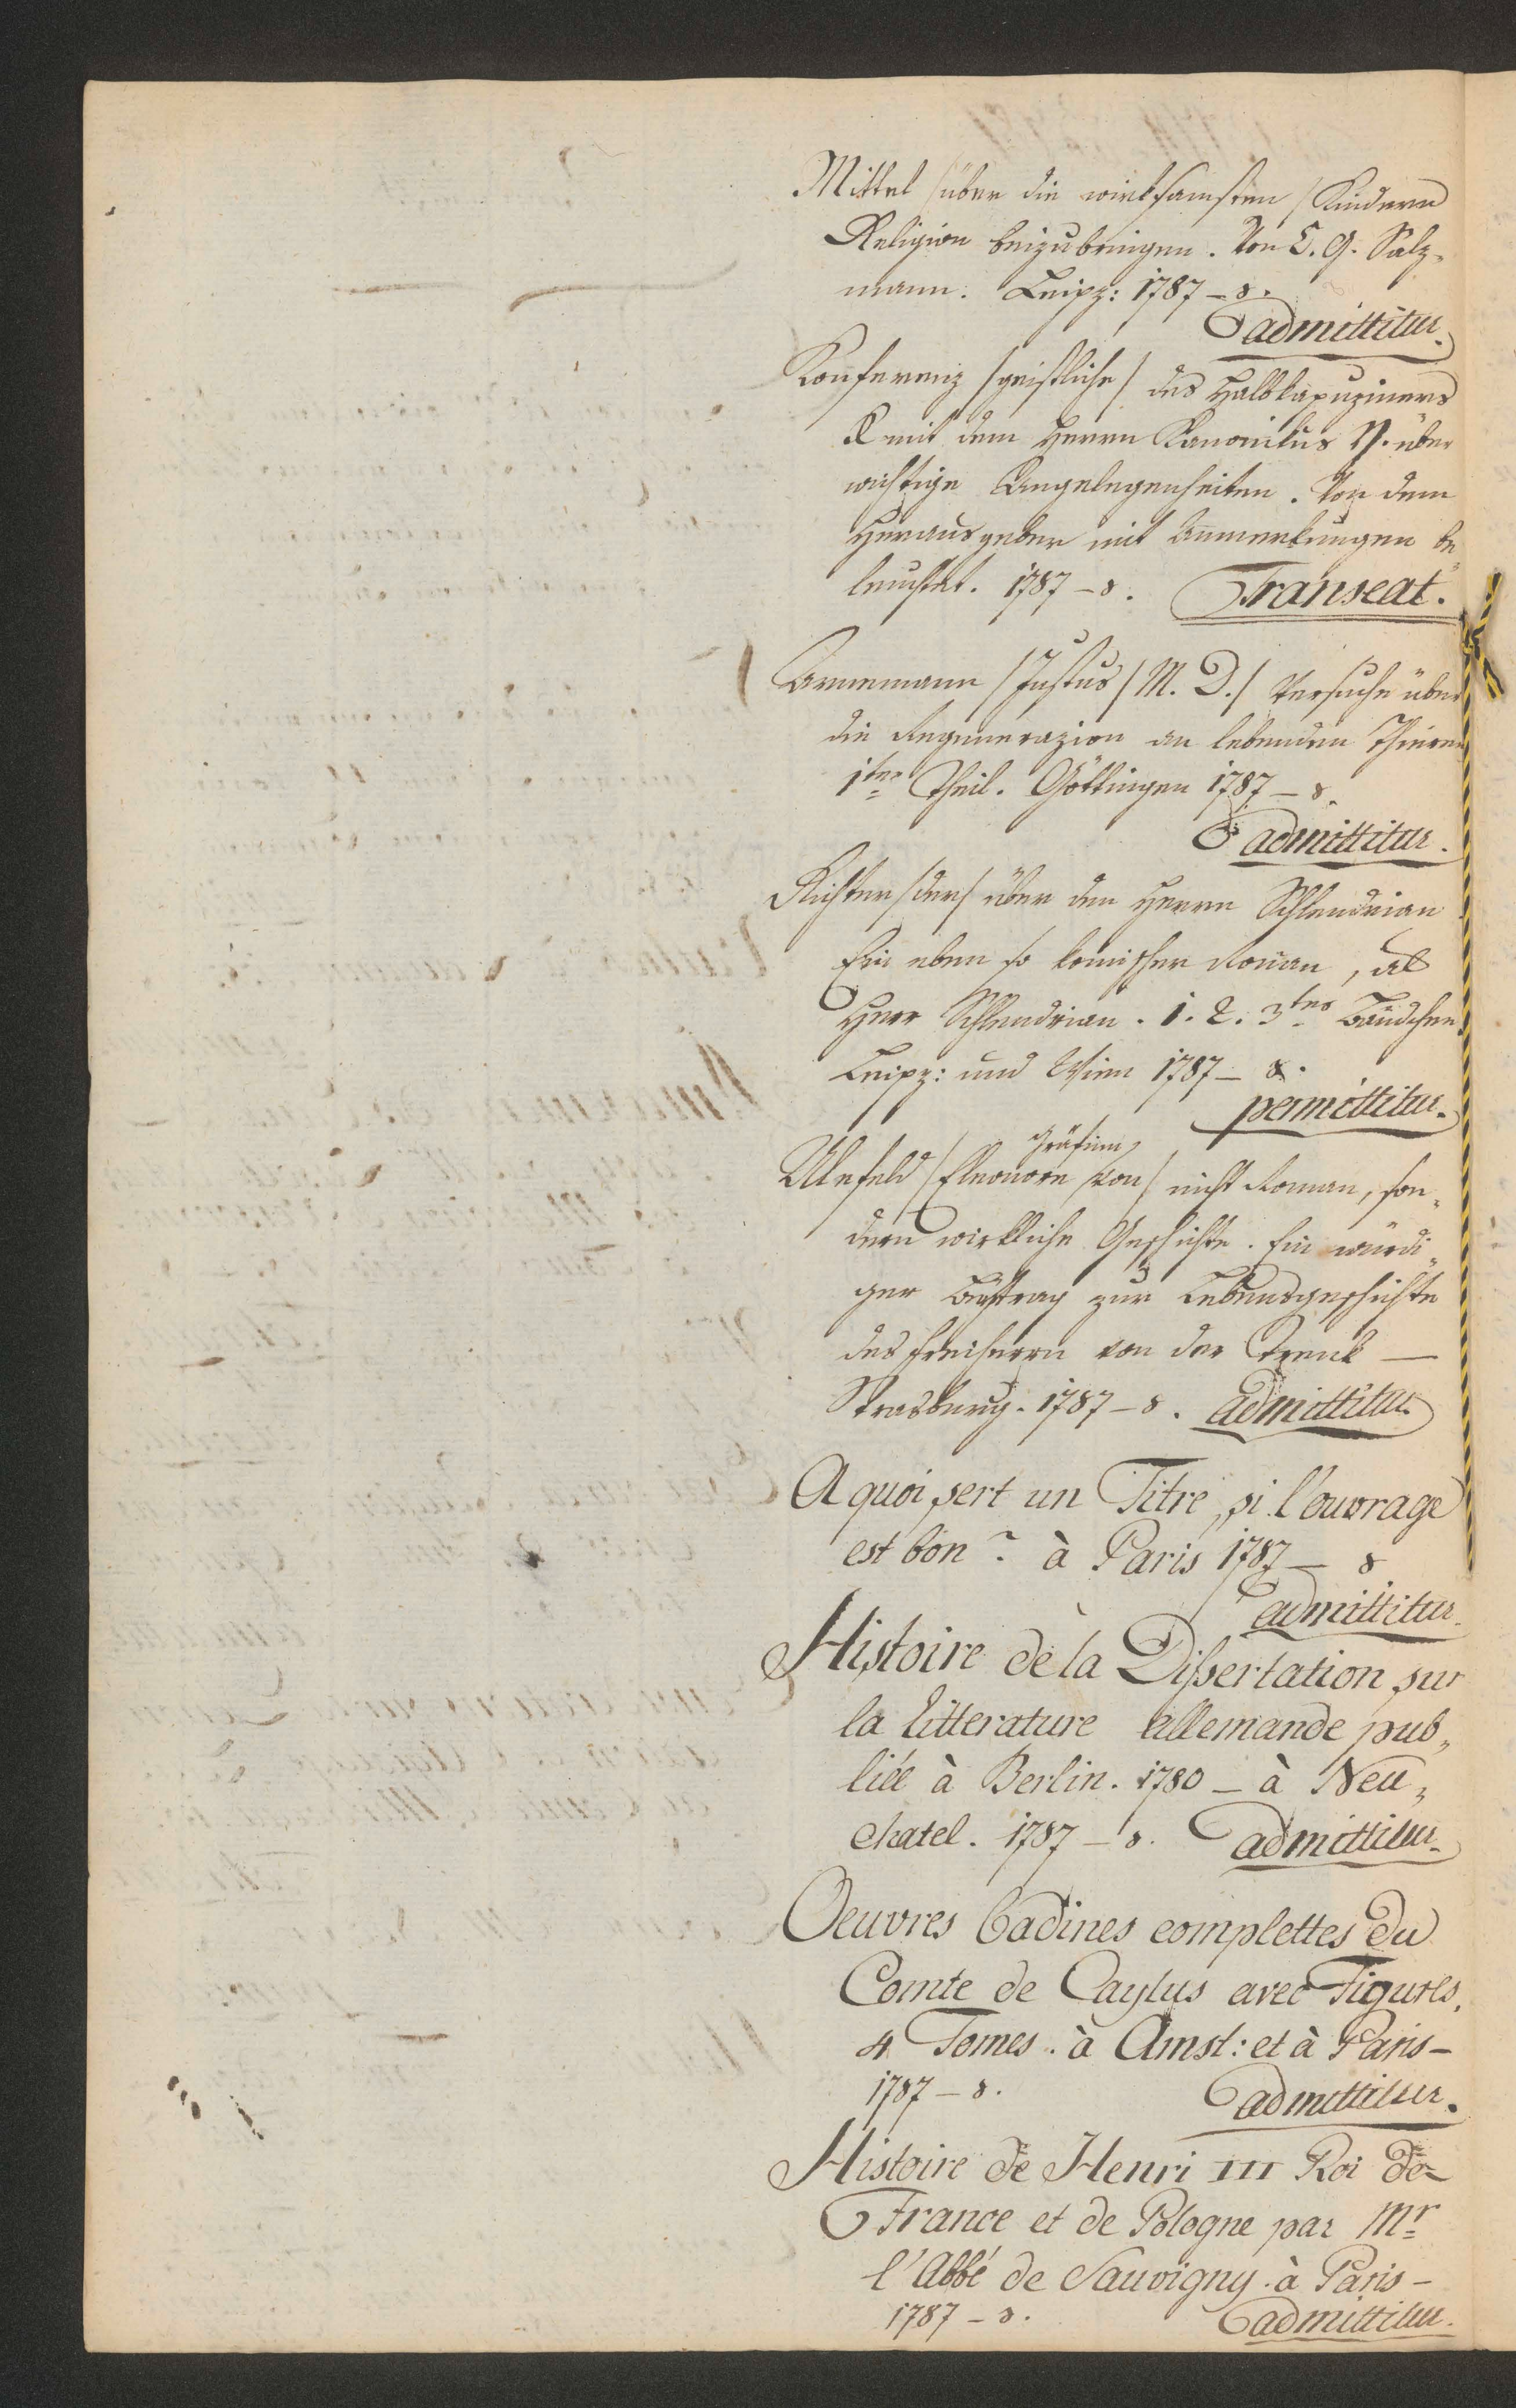 Mittel /über die wirksamsten/ Kindern
Religion beizubringen. Von C. G. Salz-
mann. Leipz: 1787 – 8.
admittitur.
Konferenz /geistliche/ des Halbkapuziners
X mit dem Herrn Kanonikus Y. über
wichtige Angelegenheiten. Von dem
Herausgeber mit Anmerkungen be„
leuchtet. 1787 – 8. Transeat.
Arnemann /Justus/ M. D./ Versuche über
die Regenerazion an lebenden Thieren
1ter Theil. Göttingen 1787 – 8.
admittitur.
Richter /der/ über den Herrn Schlendrian
Ein eben so komischer Roman, als
Herr Schlendrian. 1. 2. 3tes Bändchen
Leipz: und Wien 1787 – 8.
permittitur.
Gräfinn
Ulefeld /Eleonore von/ nicht Roman, son„
dern wirkliche Geschichte. Ein würdi„
ger Beytrag zur Lebensgeschichte
des Freiherrn von der Trenk —
Strasburg. 1787 – 8. admittitur.
A quoi sert un Titre, si l'ouvrage
est bon? à Paris 1787 – 8
admittitur.
Histoire de la Dissertation sur
la Litterature allemande pub„
liée à Berlin. 1780 – à Neu„
chatel. 1787 – 8. admittitur.
Oeuvres badines complettes du
Comte de Caylus avec Figures,
4 Tomes. à Amst: et à Paris –
1787 – 8.
admittitur.
Histoire de Henri III Roi de
France et de Pologne par Mr
l'Abbé de Sauvigny. à Paris –
1787 – 8. admittitur.